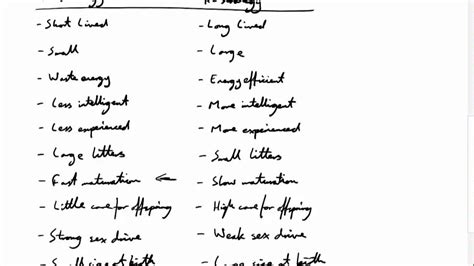 - Short Lived - Long Lived
- Small - Large
- Waste energy - Energy efficient
- Less intelligent - More intelligent
- Less experienced - More experienced
- Large litters - Small litters
- Fast maturation ← - Slow maturation
- Little care for offspring - High care for offspring
- Strong sex drive - Weak sex drive
- Small size at birth - Large size at birth